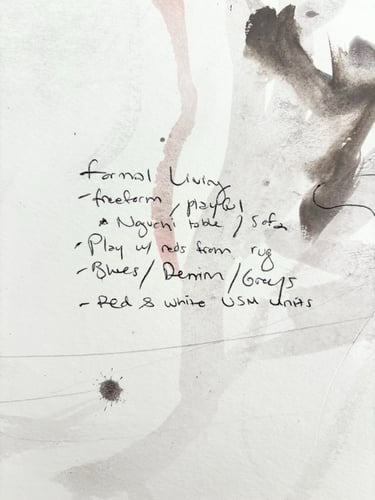 Formal Living
- freeform / playful
* Noguchi table / Sofa
- Play w/ reds from rug
- Blues / Denim / Greys
- Red & white USM units